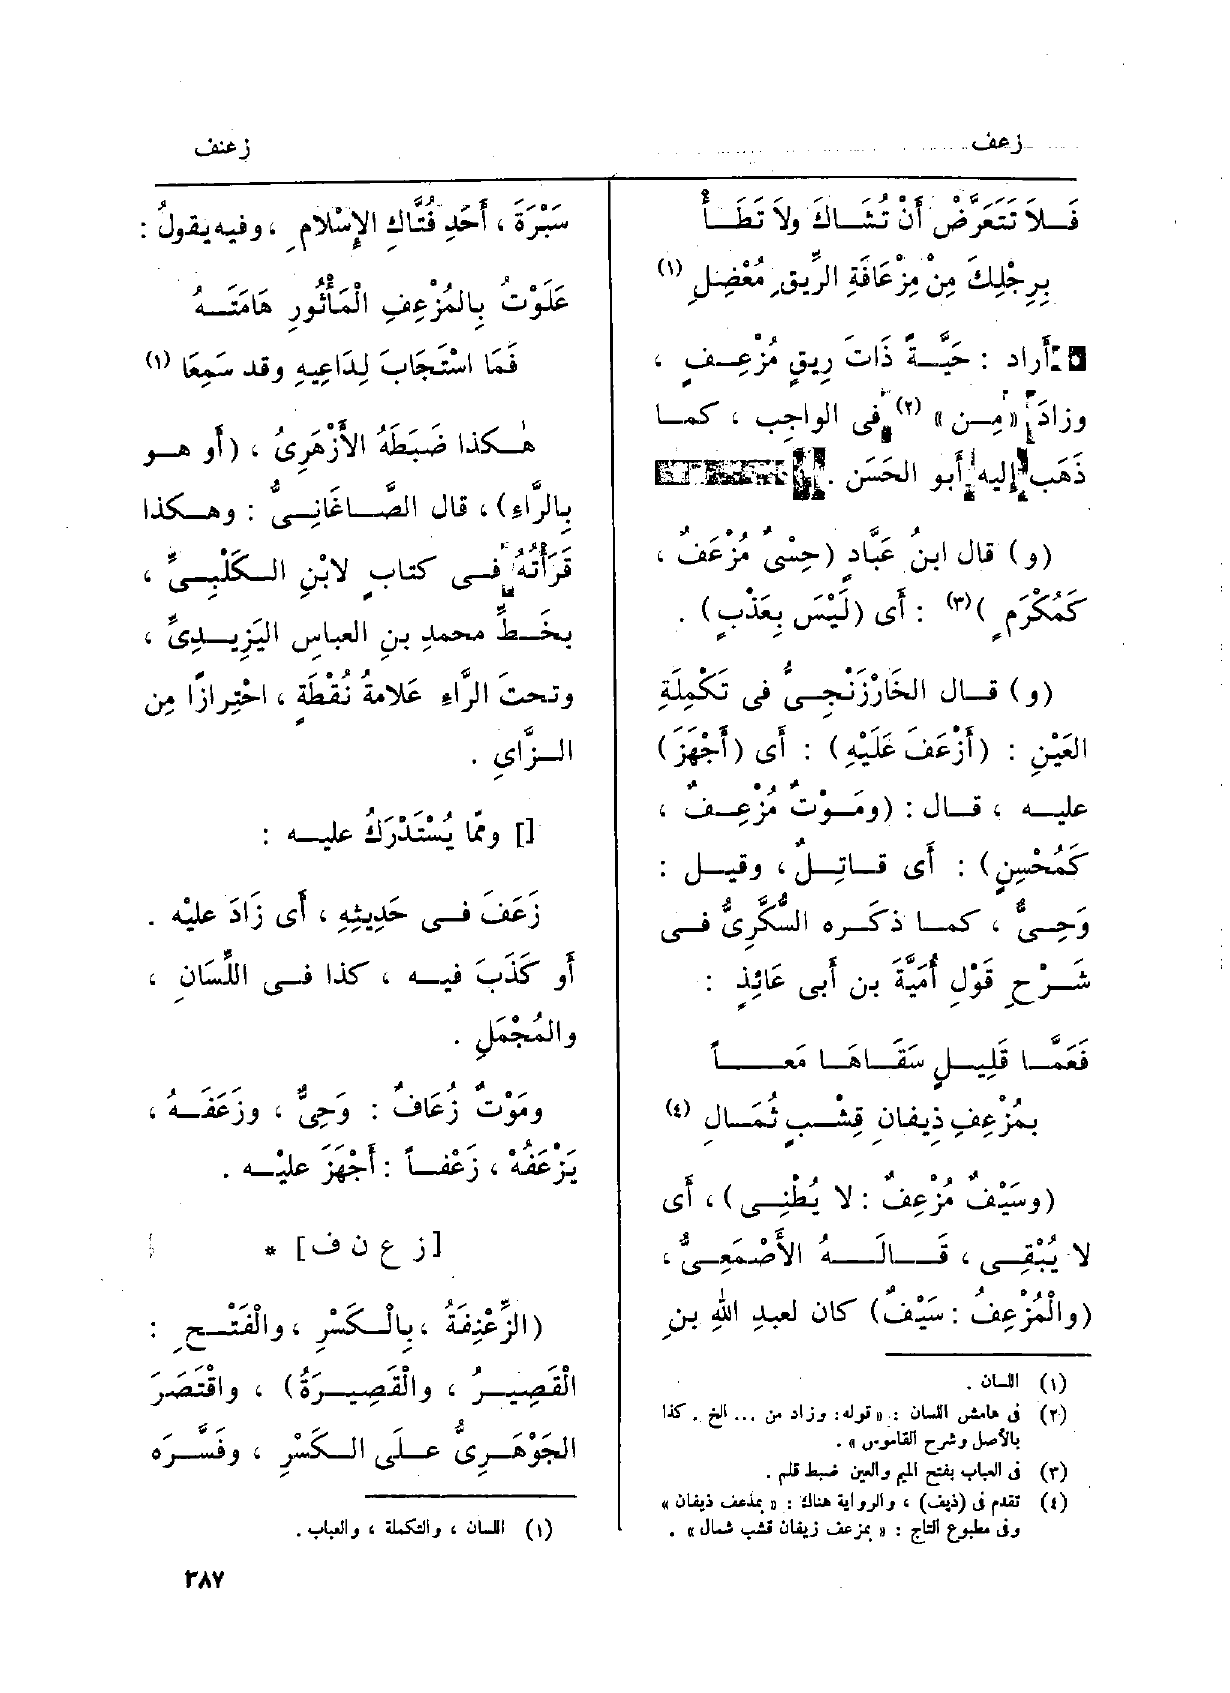 زعف
زعنف
فَلاَ تَتَعَرَّضْ أَنْ تُشَاكَ ولاَ تَطَأْ
بِرِجْلِكَ مِنْ مِزْعَافَةِ الرِّيقِ مُعْضِلِ (١)
أراد : حَيَّةً ذَاتَ رِيقٍ مُزْعِفٍ ،
وزادَ «مِن» (٢) فى الواجِب ، كما
ذَهَب إليه أبو الحَسَن .
(و) قال ابنُ عَبَّادٍ (حِسْىٌ مُزْعَفٌ ،
كَمُكْرَمٍ )(٣) : أَى (لَيْسَ بِعَذْبٍ) .
(و) قال الخَارْزَنْجِىُّ فى تَكْمِلَةِ
العَيْنِ : (أَزْعَفَ عَلَيْهِ) : أَى (أَجْهَزَ)
عليه ، قال : (ومَوْتٌ مُزْعِفٌ ،
كَمُحْسِنٍ) : أَى قاتِلٌ ، وقيل :
وَحِىٌّ ، كما ذكره السُّكَّرِىُّ فى
شَرْحِ قَوْلِ أُمَيَّةَ بن أبى عَائِذٍ :
فَعَمَّا قَلِيلٍ سَقَاهَا مَعاً
بمُزْعِفِ ذِيفانِ قِشْبٍ ثُمَالِ (٤)
(وسَيْفٌ مُزْعِفٌ : لا يُطْنِى) ، أَى
لا يُبْقِى ، قَالَهُ الأَصْمَعِىُّ ،
(والْمُزْعِفُ : سَيْفٌ) كان لعبدِ اللهِ بنِ
(١) اللسان .
(٢) فى هامش اللسان : « قوله : وزاد من ... الخ . كذا
بالأصل وشرح القاموس » .
(٣) فى العباب بفتح الميم والعين ضبط قلم .
(٤) تقدم فى (ذيف) ، والرواية هناك : « بمذعف ذيفان »
وفى مطبوع التاج : « بمزعف زيفان قشب شمال » .
سَبْرَةَ ، أَحَدِ فُتَّاكِ الإِسْلامِ ، وفيه يقولُ :
عَلَوْتُ بِالمُزْعِفِ الْمَأْثُورِ هَامَتَهُ
فَمَا اسْتَجَابَ لِدَاعِيهِ وقد سَمِعَا (١)
هٰكذا ضَبَطَهُ الأَزْهَرِىُّ ، (أو هو
بِالرَّاءِ) ، قال الصَّاغَانِىُّ : وهكذا
قَرَأْتُهُ فى كتابٍ لابْنِ الكَلْبِىِّ ،
بخَطِّ محمدِ بنِ العباسِ اليَزِيدِىِّ ،
وتحتَ الرَّاءِ عَلامةُ نُقْطَةٍ ، احْتِرازًا مِن
الزَّاىِ .
[] وممّا يُسْتَدْرَكُ عليه :
زَعَفَ فى حَدِيثِهِ ، أَى زَادَ عليْه .
أو كَذَبَ فيه ، كذا فى اللِّسَانِ ،
والمُجْمَلِ .
ومَوْتٌ زُعَافٌ : وَحِىٌّ ، وزَعَفَهُ ،
يَزْعَفُهْ ، زَعْفاً : أَجْهَزَ عليْه .
[ز ع ن ف] *
(الزِّعْنِفَةُ ، بِالْكَسْرِ ، والْفَتْحِ :
الْقَصِيرُ ، والْقَصِيرَةُ) ، واقْتَصَرَ
الجَوْهَرِىُّ علَى الكَسْرِ ، وفَسَّره
(١) اللسان ، والتكملة ، والعباب .
٣٨٧